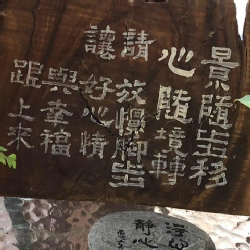 景隨步移
心隨境轉
請放慢腳步
讓好心情
與幸福
跟上來
靜心